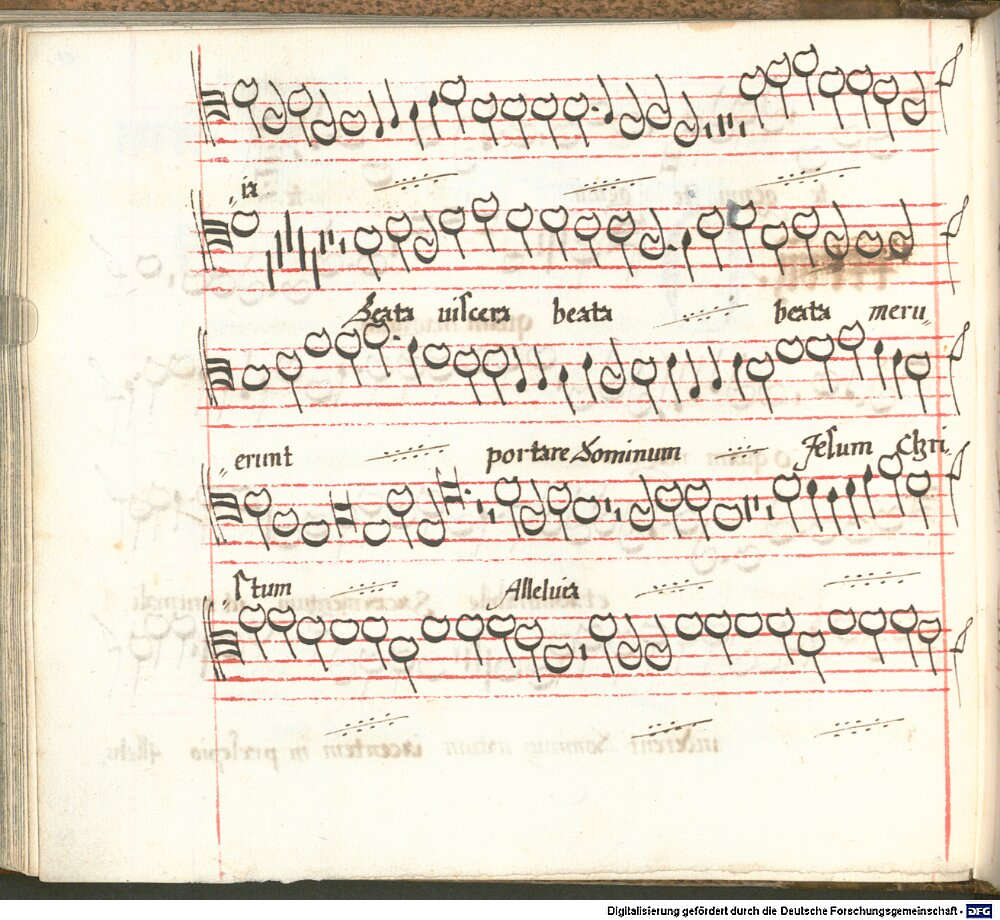 „ia
Beata uiſcera beata beata meru„
„erunt portare Dominum Jeſum Chri„
„ſtum Alleluia
Digitalisierung gefördert durch die Deutsche Forschungsgemeinschaft - DFG